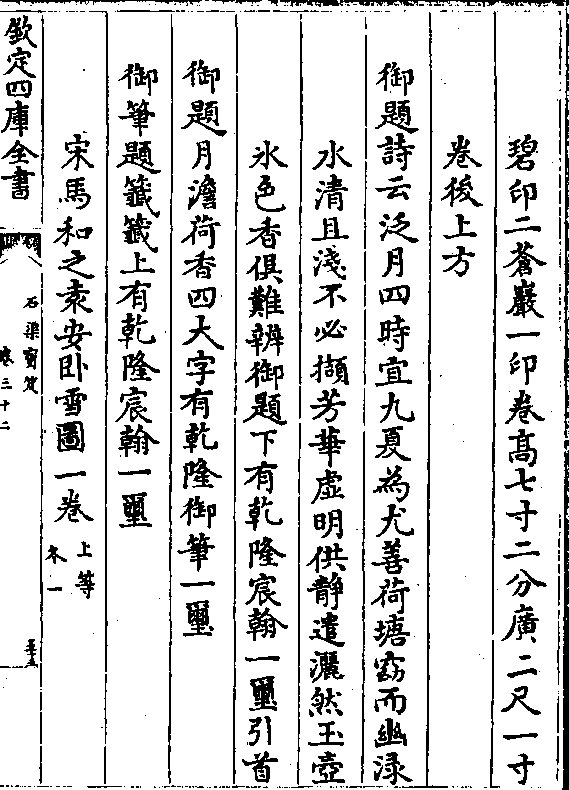 碧印二蒼巖一印卷髙七寸二分廣二尺一寸
卷後上方
御題詩云泛月四時宜九夏為尤善荷塘窈而幽渌
水清且淺不必擷芳華虛明供靜遣灑然玉壺
氷色香俱難辨御題下有乾隆宸翰一璽引首
御題月澹荷香四大字有乾隆御筆一璽
御筆題籤籤上有乾隆宸翰一璽
宋馬和之袁安卧雪圖一卷 上等
冬一
欽定四庫全書
石渠寶笈
卷三十二